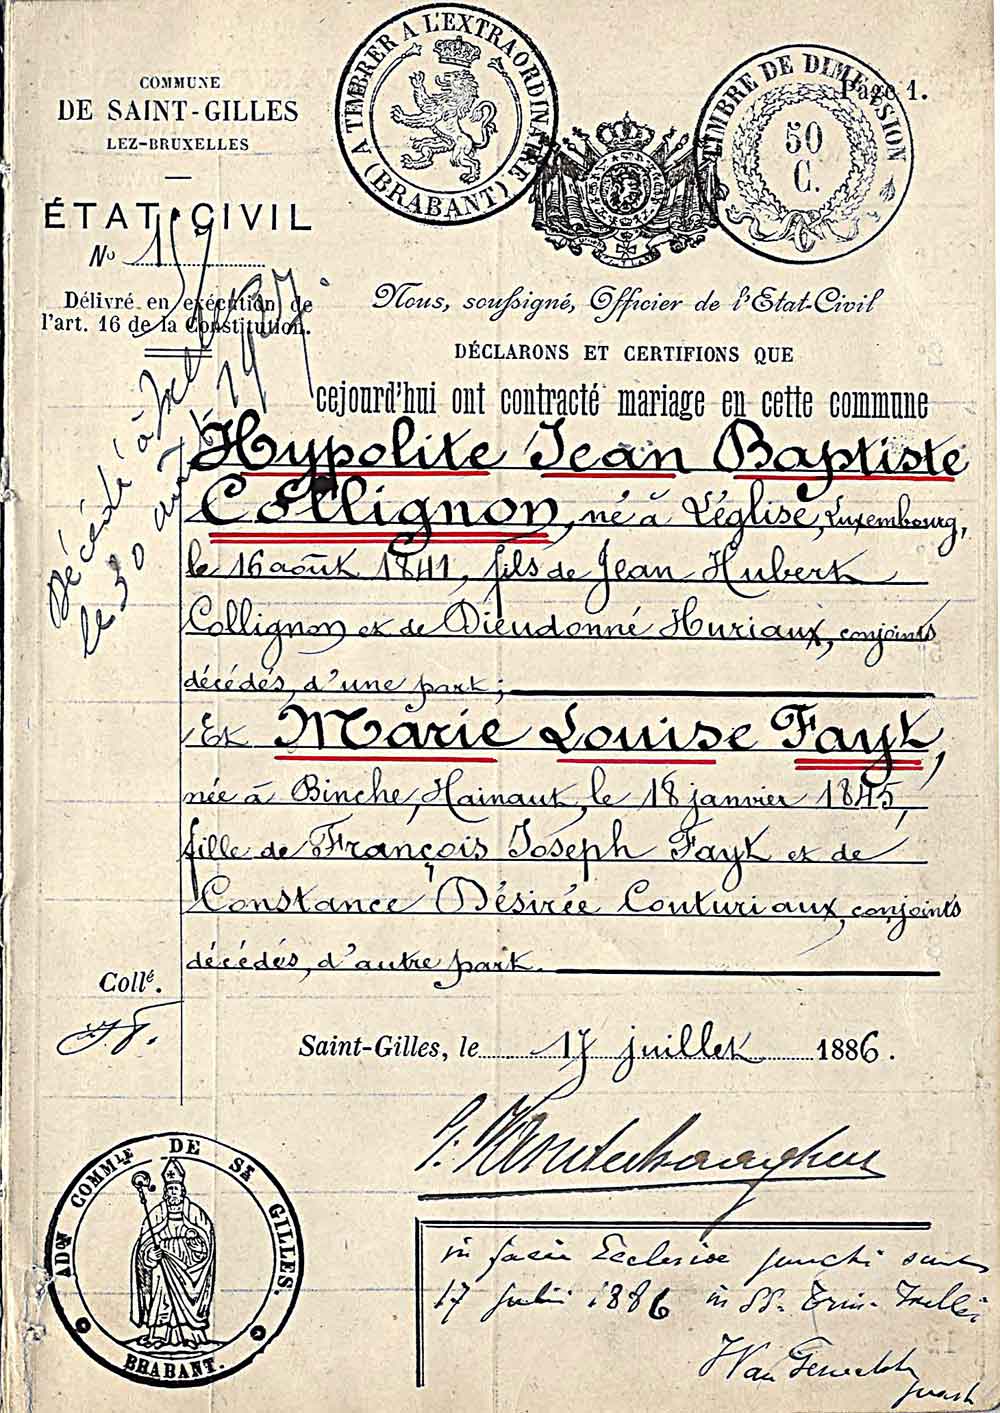 COMMUNE
DE SAINT-GILLES
LEZ-BRUXELLES
ÉTAT CIVIL
Nº 159
Délivré en exécution de
l'art. 16 de la Constitution.
A TIMBRER A L'EXTRAORDINAIRE
(BRABANT)
TIMBRE DE DIMENSION
50
C.
Page 1.
Nous, soussigné, Officier de l'Etat-Civil
DÉCLARONS ET CERTIFIONS QUE
cejourd'hui ont contracté mariage en cette commune
Hypolite Jean Baptiste
Collignon, né à Léglise, Luxembourg,
le 16 août 1841, fils de Jean Hubert
Collignon et de Dieudonné Huriaux, conjoints
décédés, d'une part;
Et Marie Louise Fayt,
née à Binche, Hainaut, le 18 janvier 1845,
fille de François Joseph Fayt et de
Constance Désirée Couturiaux, conjoints
décédés, d'autre part.
Décédé à Ixelles
le 30 août 1907.
Collé.
Saint-Gilles, le 17 juillet 1886.
ADON COMMLE DE ST GILLES.
BRABANT.
in facie Ecclesiae juncti sunt
17 Julii 1886 in SS. Trin. Ixellis